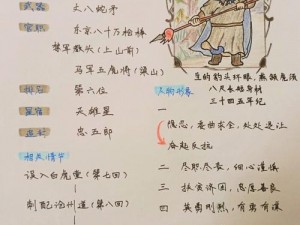 武器 丈八蛇矛
官职 东京八十万枪棒
禁军教头(上山前)
马军五虎将(梁山)
排名 第六位
星宿 天雄星
忠五郎
相关情节
误入白虎堂(第七回)
刺配沧州道(第八回)
生的豹头环眼,燕颔虎须
八尺长短身材
三十四五年纪
人物形象
一 隐忍、委曲求全、处处退让
奋起反抗
二 尽职、尽责、细心谨慎
三 扶危济困、忠厚善良
四 英勇刚烈、有勇有谋